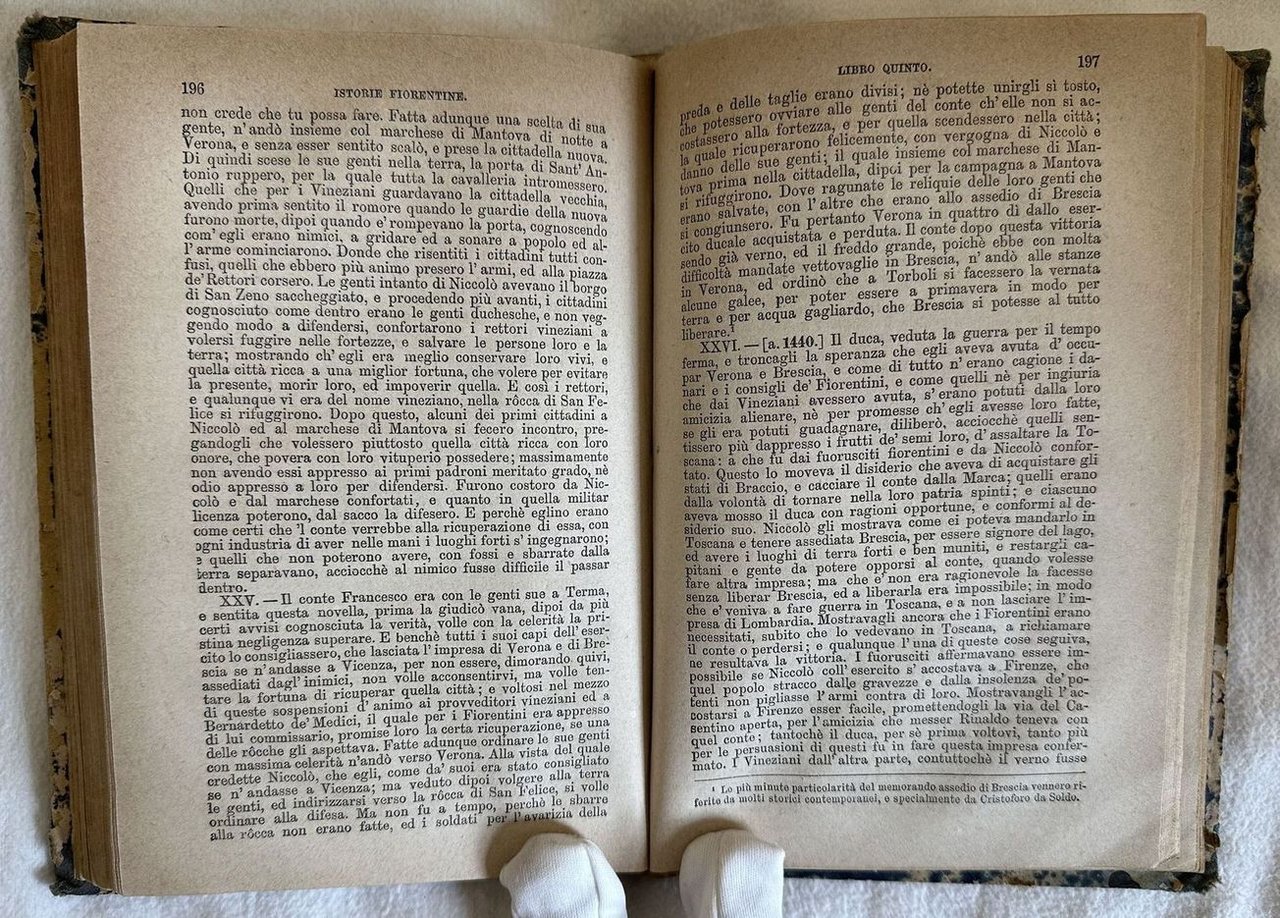 196
ISTORIE FIORENTINE.
non crede che tu possa fare. Fatta adunque una scelta di sua
gente, n'andò insieme col marchese di Mantova di notte a
Verona, e senza esser sentito scalò, e prese la cittadella nuova.
Di quindi scese le sue genti nella terra, la porta di Sant' An-
tonio ruppero, per la quale tutta la cavalleria intromessero.
Quelli che per i Vineziani guardavano la cittadella vecchia,
avendo prima sentito il romore quando le guardie della nuova
furono morte, dipoi quando e' rompevano la porta, cognoscendo
com' egli erano nimici, a gridare ed a sonare a popolo ed al-
l' arme cominciarono. Donde che risentiti i cittadini tutti con-
fusi, quelli che ebbero più animo presero l' armi, ed alla piazza
de' Rettori corsero. Le genti intanto di Niccolò avevano il borgo
di San Zeno saccheggiato, e procedendo più avanti, i cittadini
cognosciuto come dentro erano le genti duchesche, e non veg-
gendo modo a difendersi, confortarono i rettori vineziani a
volersi fuggire nelle fortezze, e salvare le persone loro e la
terra; mostrando ch' egli era meglio conservare loro vivi, e
quella città ricca a una miglior fortuna, che volere per evitare
la presente, morir loro, ed impoverir quella. E così i rettori,
e qualunque vi era del nome vineziano, nella rôcca di San Fe-
lice si rifuggirono. Dopo questo, alcuni dei primi cittadini a
Niccolò ed al marchese di Mantova si fecero incontro, pre-
gandogli che volessero piuttosto quella città ricca con loro
onore, che povera con loro vituperio possedere; massimamente
non avendo essi appresso ai primi padroni meritato grado, nè
odio appresso a loro per difendersi. Furono costoro da Nic-
colò e dal marchese confortati, e quanto in quella militar
licenza poterono, dal sacco la difesero. E perchè eglino erano
come certi che 'l conte verrebbe alla ricuperazione di essa, con
ogni industria di aver nelle mani i luoghi forti s' ingegnarono;
e quelli che non poterono avere, con fossi e sbarrate dalla
terra separavano, acciocchè al nimico fusse difficile il passar
dentro.
XXV. — Il conte Francesco era con le genti sue a Terma,
e sentita questa novella, prima la giudicò vana, dipoi da più
certi avvisi cognosciuta la verità, volle con la celerità la pri-
stina negligenza superare. E benchè tutti i suoi capi dell' eser-
cito lo consigliassero, che lasciata l' impresa di Verona e di Bre-
scia se n'andasse a Vicenza, per non essere, dimorando quivi,
assediati dagl' inimici, non volle acconsentirvi, ma volle ten-
tare la fortuna di ricuperar quella città; e voltosi nel mezzo
di queste sospensioni d' animo ai provveditori vineziani ed a
Bernardetto de' Medici, il quale per i Fiorentini era appresso
di lui commissario, promise loro la certa ricuperazione, se una
delle rôcche gli aspettava. Fatte adunque ordinare le sue genti
con massima celerità n'andò verso Verona. Alla vista del quale
credette Niccolò, che egli, come da' suoi era stato consigliato
se n' andasse a Vicenza; ma veduto dipoi volgere alla terra
le genti, ed indirizzarsi verso la rôcca di San Felice, si volle
ordinare alla difesa. Ma non fu a tempo, perchè le sbarre
alla rôcca non erano fatte, ed i soldati per l' avarizia della
LIBRO QUINTO.
197
preda e delle taglie erano divisi; nè potette unirgli sì tosto,
che potessero ovviare alle genti del conte ch' elle non si ac-
costassero alla fortezza, e per quella scendessero nella città;
la quale ricuperarono felicemente, con vergogna di Niccolò e
danno delle sue genti; il quale insieme col marchese di Man-
tova prima nella cittadella, dipoi per la campagna a Mantova
si rifuggirono. Dove ragunate le reliquie delle loro genti che
erano salvate, con l' altre che erano allo assedio di Brescia
si congiunsero. Fu pertanto Verona in quattro dì dallo eser-
cito ducale acquistata e perduta. Il conte dopo questa vittoria
sendo già verno, ed il freddo grande, poichè ebbe con molta
difficoltà mandate vettovaglie in Brescia, n' andò alle stanze
in Verona, ed ordinò che a Torboli si facessero la vernata
alcune galee, per poter essere a primavera in modo per
terra e per acqua gagliardo, che Brescia si potesse al tutto
liberare.¹
XXVI. — [a. 1440.] Il duca, veduta la guerra per il tempo
ferma, e troncagli la speranza che egli aveva avuta d' occu-
par Verona e Brescia, e come di tutto n' erano cagione i da-
nari e i consigli de' Fiorentini, e come quelli nè per ingiuria
che dai Vineziani avessero avuta, s' erano potuti dalla loro
amicizia alienare, nè per promesse ch' egli avesse loro fatte,
se gli era potuti guadagnare, diliberò, acciocchè quelli sen-
tissero più dappresso i frutti de' semi loro, d' assaltare la To-
scana: a che fu dai fuorusciti fiorentini e da Niccolò confor-
tato. Questo lo moveva il disiderio che aveva di acquistare gli
stati di Braccio, e cacciare il conte dalla Marca; quelli erano
dalla volontà di tornare nella loro patria spinti; e ciascuno
aveva mosso il duca con ragioni opportune, e conformi al de-
siderio suo. Niccolò gli mostrava come ei poteva mandarlo in
Toscana e tenere assediata Brescia, per essere signore del lago,
ed avere i luoghi di terra forti e ben muniti, e restargli ca-
pitani e gente da potere opporsi al conte, quando volesse
fare altra impresa; ma che e' non era ragionevole la facesse
senza liberar Brescia, ed a liberarla era impossibile; in modo
che e' veniva a fare guerra in Toscana, e a non lasciare l' im-
presa di Lombardia. Mostravagli ancora che i Fiorentini erano
necessitati, subito che lo vedevano in Toscana, a richiamare
il conte o perdersi; e qualunque l' una di queste cose seguiva,
ne resultava la vittoria. I fuorusciti affermavano essere im-
possibile se Niccolò coll' esercito s' accostava a Firenze, che
quel popolo stracco dalle gravezze e dalla insolenza de' po-
tenti non pigliasse l' armi contra di loro. Mostravangli l' ac-
costarsi a Firenze esser facile, promettendogli la via del Ca-
sentino aperta, per l' amicizia che messer Rinaldo teneva con
quel conte; tantochè il duca, per sè prima voltovi, tanto più
per le persuasioni di questi fu in fare questa impresa confer-
mato. I Vineziani dall' altra parte, contuttochè il verno fusse
¹ Le più minute particolarità del memorando assedio di Brescia vennero ri-
ferite da molti storici contemporanei, e specialmente da Cristoforo da Soldo.